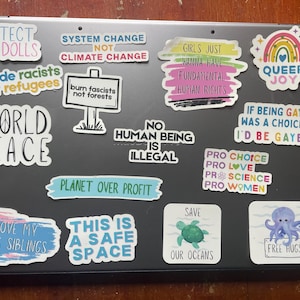 TECT
DOLLS
SYSTEM CHANGE
NOT
CLIMATE CHANGE
GIRLS JUST
WANNA HAVE
FUNDAMENTAL
HUMAN RIGHTS
QUEER
JOY
de racists
refugees
burn fascists
not forests
ORLD
EACE
NO
HUMAN BEING
IS
ILLEGAL
IF BEING GAY
WAS A CHOICE
I'D BE GAYE
PRO CHOICE
PRO LOVE
PRO SCIENCE
PRO WOMEN
PLANET OVER PROFIT
OVE MY
SIBLINGS
THIS IS
A SAFE
SPACE
SAVE
OUR OCEANS
FREE HUGS